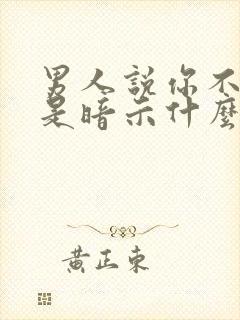 男人説你不
是暗示什麼
黄正東